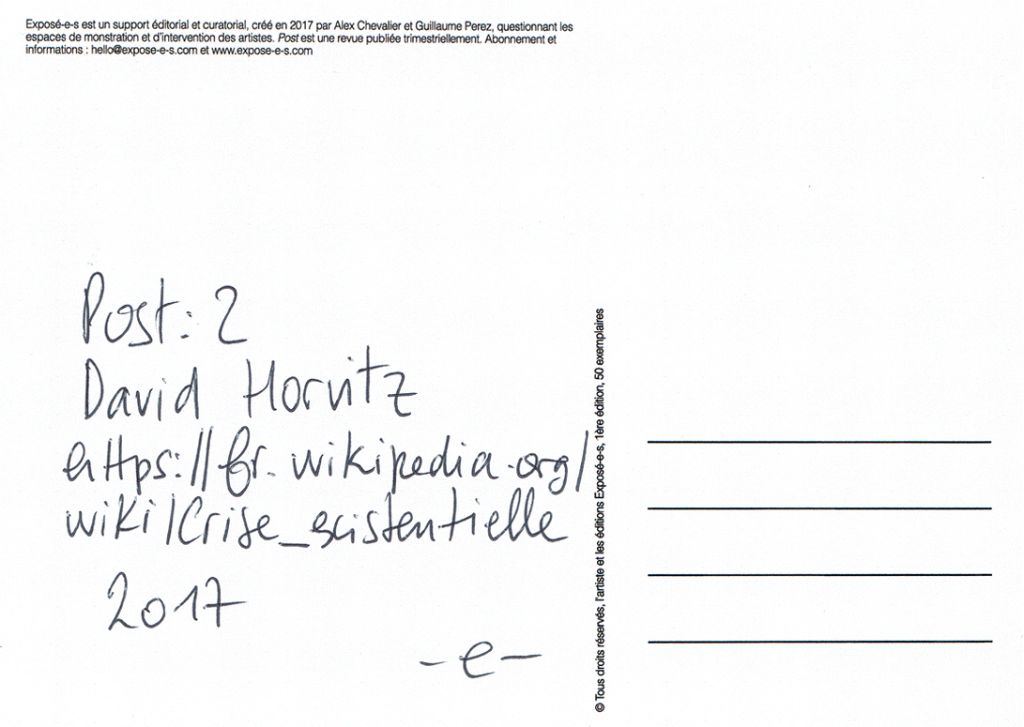 Exposé-e-s est un support éditorial et curatorial, créé en 2017 par Alex Chevalier et Guillaume Perez, questionnant les
espaces de monstration et d'intervention des artistes. Post est une revue publiée trimestriellement. Abonnement et
informations : hello@expose-e-s.com et www.expose-e-s.com
Post: 2
David Horvitz
https://fr.wikipedia.org/
wiki/Crise_existentielle
2017
-e-
© Tous droits réservés, l'artiste et les éditions Exposé-e-s, 1ère édition, 50 exemplaires